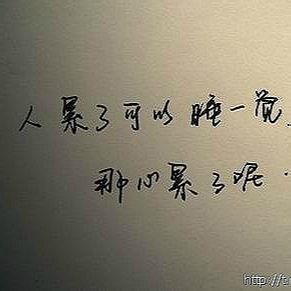 人累了可以睡一觉.
那心累了呢.
http://t